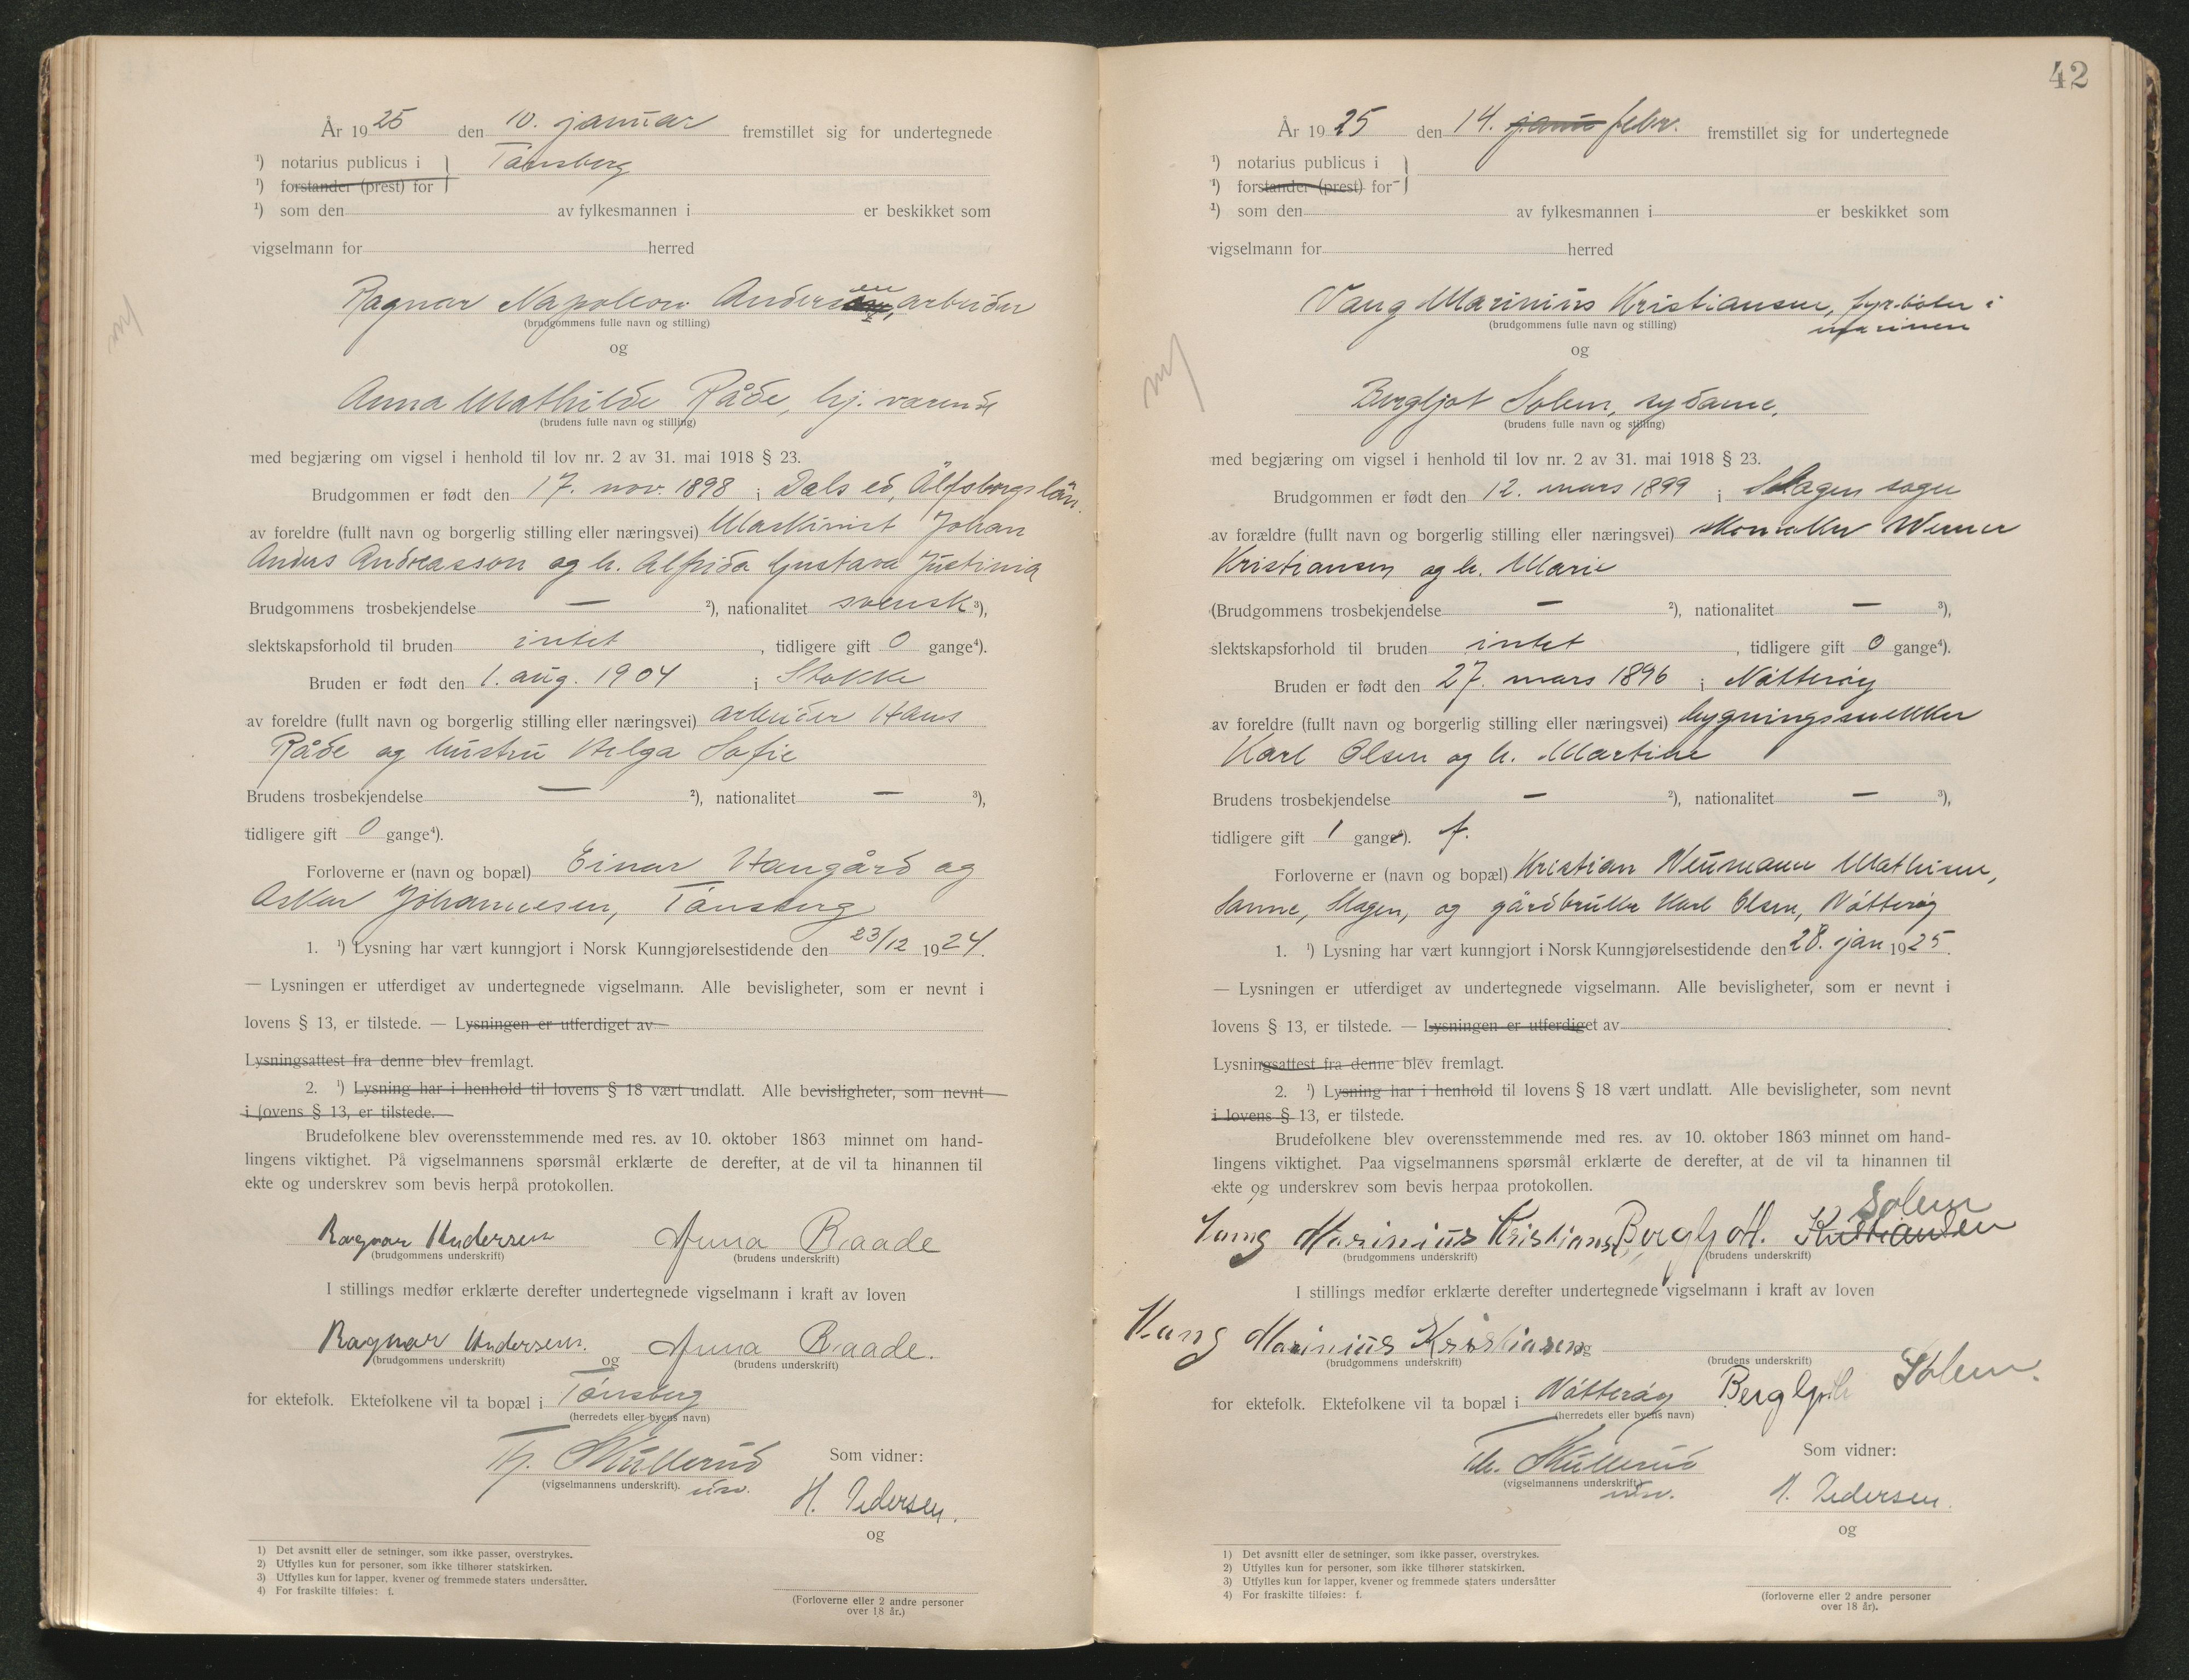 År 1925 den 10. januar fremstillet sig for undertegnede
¹) notarius publicus i } Tönsberg
¹) forstander (prest) for
¹) som den av fylkesmannen i er beskikket som
vigselmann for herred
Ragnar Napoleon Andersen, arbeider
(brudgommens fulle navn og stilling)
og
Anna Mathilde Råde, hj. værende
(brudens fulle navn og stilling)
med begjæring om vigsel i henhold til lov nr. 2 av 31. mai 1918 § 23.
Brudgommen er født den 17. nov. 1898 i Dals ed, Älfsborgs län.
av foreldre (fullt navn og borgerlig stilling eller næringsvei) Maskinist Johan
Anders Andreasson og h. Alfrida Gustava Justinia
Brudgommens trosbekjendelse — ²), nationalitet svensk ³),
slektskapsforhold til bruden intet, tidligere gift 0 gange⁴).
Bruden er født den 1. aug. 1904 i Stokke
av foreldre (fullt navn og borgerlig stilling eller næringsvei) arbeider Hans
Råde og hustru Helga Sofie
Brudens trosbekjendelse — ²), nationalitet — ³),
tidligere gift 0 gange⁴).
Forloverne er (navn og bopæl) Einar Haugård og
Oskar Johannesen, Tönsberg
1. ¹) Lysning har vært kunngjort i Norsk Kunngjørelsestidende den 23/12 1924.
— Lysningen er utferdiget av undertegnede vigselmann. Alle bevisligheter, som er nevnt i
lovens § 13, er tilstede. — Lysningen er utferdiget av
Lysningsattest fra denne blev fremlagt.
2. ¹) Lysning har i henhold til lovens § 18 vært undlatt. Alle bevisligheter, som nevnt
i lovens § 13, er tilstede.
Brudefolkene blev overensstemmende med res. av 10. oktober 1863 minnet om hand-
lingens viktighet. På vigselmannens spørsmål erklærte de derefter, at de vil ta hinannen til
ekte og underskrev som bevis herpå protokollen.
Ragnar Andersen Anna Raade
(brudgommens underskrift) (brudens underskrift)
I stillings medfør erklærte derefter undertegnede vigselmann i kraft av loven
Ragnar Andersen. og Anna Raade.
(brudgommens underskrift) (brudens underskrift)
for ektefolk. Ektefolkene vil ta bopæl i Tönsberg
(herredets eller byens navn)
Th. Skullerud Som vidner:
(vigselmannens underskrift).
H. Pedersen.
og
1) Det avsnitt eller de setninger, som ikke passer, overstrykes.
2) Utfylles kun for personer, som ikke tilhører statskirken.
3) Utfylles kun for lapper, kvener og fremmede staters undersåtter.
4) For fraskilte tilføies: f.
(Forloverne eller 2 andre personer
over 18 år.)
42
År 1925 den 14. janu febr. fremstillet sig for undertegnede
¹) notarius publicus i }
¹) forstander (prest) for
¹) som den av fylkesmannen i er beskikket som
vigselmann for herred
Vang Marinius Kristiansen, fyrböter i
marinen
(brudgommens fulle navn og stilling)
og
Bergljot Solem, sydame.
(brudens fulle navn og stilling)
med begjæring om vigsel i henhold til lov nr. 2 av 31. mai 1918 § 23.
Brudgommen er født den 12. mars 1899 i Slagen sogn
av forældre (fullt navn og borgerlig stilling eller næringsvei) skomaker Werner
Kristiansen og h. Marie
(Brudgommens trosbekjendelse — ²), nationalitet — ³),
slektskapsforhold til bruden intet, tidligere gift 0 gange⁴).
Bruden er født den 27. mars 1896 i Nötteröy
av foreldre (fullt navn og borgerlig stilling eller næringsvei) bygningssnekker
Karl Olsen og h. Martine
Brudens trosbekjendelse — ²), nationalitet — ³),
tidligere gift 1 gange⁴). f.
Forloverne er (navn og bopæl) Kristian Neumann Mathisen,
Sanne, Slagen, og gårdbruker Karl Olsen, Nötteröy
1. ¹) Lysning har vært kunngjort i Norsk Kunngjørelsestidende den 28. jan 1925.
— Lysningen er utferdiget av undertegnede vigselmann. Alle bevisligheter, som er nevnt i
lovens § 13, er tilstede. — Lysningen er utferdiget av
Lysningsattest fra denne blev fremlagt.
2. ¹) Lysning har i henhold til lovens § 18 vært undlatt. Alle bevisligheter, som nevnt
i lovens § 13, er tilstede.
Brudefolkene blev overensstemmende med res. av 10. oktober 1863 minnet om hand-
lingens viktighet. Paa vigselmannens spørsmål erklærte de derefter, at de vil ta hinannen til
ekte og underskrev som bevis herpaa protokollen.
Solem
Vang Marinius Kristiansen Bergljot. Kristiansen
(brudgommens underskrift) (brudens underskrift)
I stillings medfør erklærte derefter undertegnede vigselmann i kraft av loven
Vang Marinius Kristiansen og
(brudgommens underskrift) (brudens underskrift)
for ektefolk. Ektefolkene vil ta bopæl i Nötteröy Bergljot Solem.
(herredets eller byens navn)
Th. Skullerud Som vidner:
(vigselmannens underskrift)
H. Pedersen.
og
1) Det avsnitt eller de setninger, som ikke passer, overstrykes.
2) Utfylles kun for personer, som ikke tilhører statskirken.
3) Utfylles kun for lapper, kvener og fremmede staters undersåtter
4) For fraskilte tilføies: f.
(forloverne eller 2 andre personer
over 18 år).